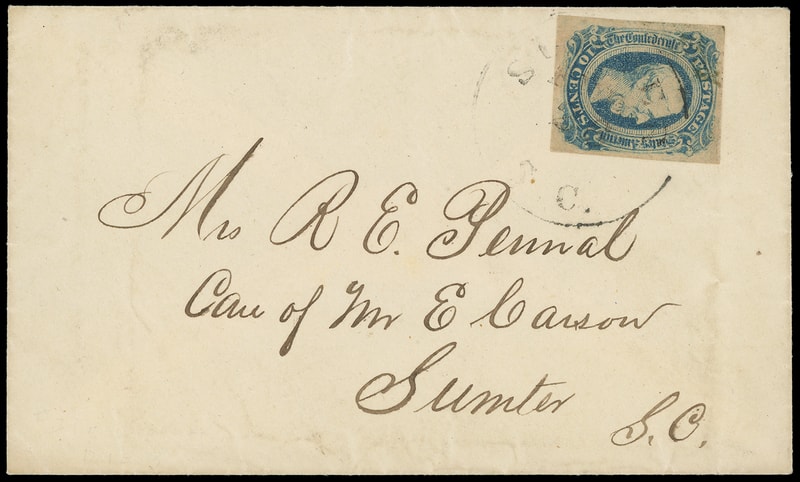 The Confederate
States America
POSTAGE
10 CENTS
S
S. C.
Mrs R E. Pennal
Care of Mr E Carson
Sumter
S. C.